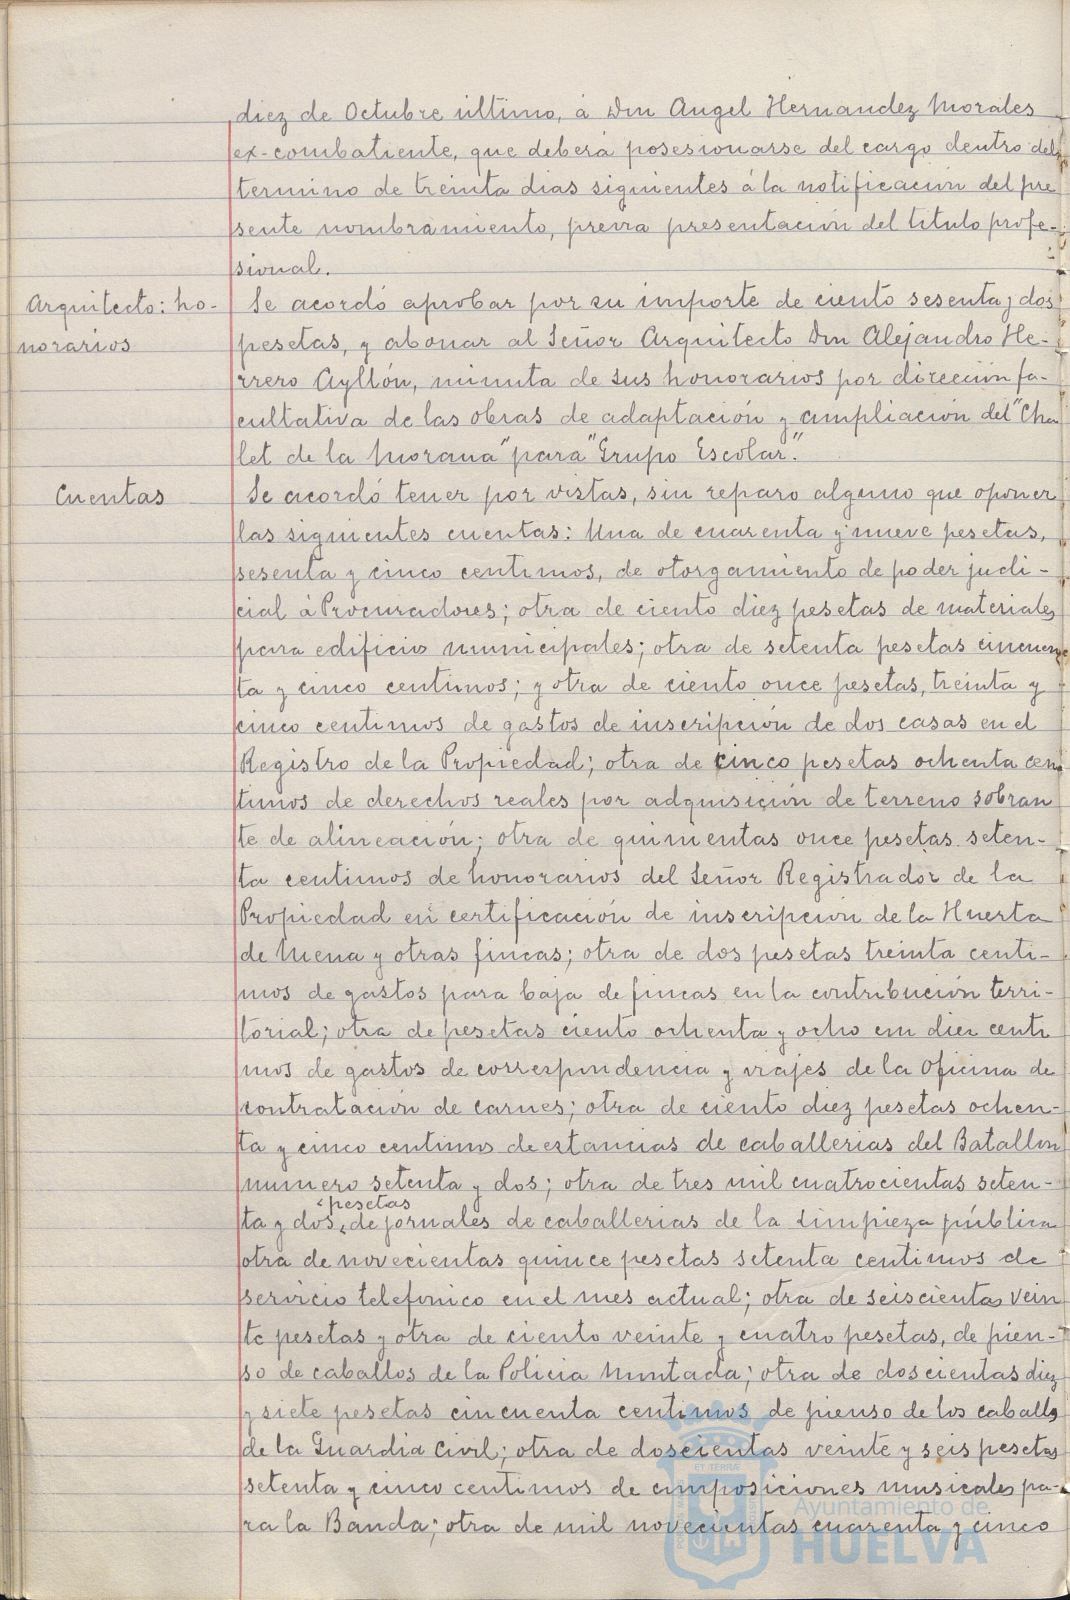 diez de Octubre último, á Don Angel Hernandez Morales
ex-combatiente, que deberá posesionarse del cargo dentro del
termino de treinta dias siguientes á la notificación del pre
sente nombramiento, previa presentación del titulo profe-
sional.
Arquitecto: ho-
norarios
Se acordó aprobar por su importe de ciento sesenta y dos
pesetas, y abonar al Señor Arquitecto Don Alejandro He-
rrero Ayllón, minuta de sus honorarios por dirección fa-
cultativa de las obras de adaptación y ampliación del "Cha
let de la Morana" para "Grupo Escolar."
Cuentas
Se acordó tener por vistas, sin reparo alguno que oponer
las siguientes cuentas: Una de cuarenta y nueve pesetas,
sesenta y cinco centimos, de otorgamiento de poder judi-
cial á Procuradores; otra de ciento diez pesetas de materiales
para edificios municipales; otra de setenta pesetas cincuen
ta y cinco centimos; y otra de ciento once pesetas, treinta y
cinco centimos de gastos de inscripción de dos casas en el
Registro de la Propiedad; otra de cinco pesetas ochenta cen
timos de derechos reales por adquisición de terreno sobran
te de alineación; otra de quinientas once pesetas seten-
ta centimos de honorarios del Señor Registrador de la
Propiedad en certificación de inscripción de la Huerta
de Mena y otras fincas; otra de dos pesetas treinta centi-
mos de gastos para baja de fincas en la contribución terri-
torial; otra de pesetas ciento ochenta y ocho con diez centi
mos de gastos de correspondencia y viajes de la Oficina de
contratación de carnes; otra de ciento diez pesetas ochen-
ta y cinco centimos de estancias de caballerias del Batallon
numero setenta y dos; otra de tres mil cuatrocientas seten-
pesetas
ta y dos, de jornales de caballerias de la Limpieza pública
otra de novecientas quince pesetas setenta centimos de
servicio telefonico en el mes actual; otra de seiscientas vein
te pesetas y otra de ciento veinte y cuatro pesetas, de pien-
so de caballos de la Policia Montada; otra de doscientas diez
y siete pesetas cincuenta centimos de pienso de los caballos
de la Guardia Civil; otra de doscientas veinte y seis pesetas
setenta y cinco centimos de composiciones musicales pa-
ra la Banda; otra de mil novecientas cuarenta y cinco
Ayuntamiento de
HUELVA